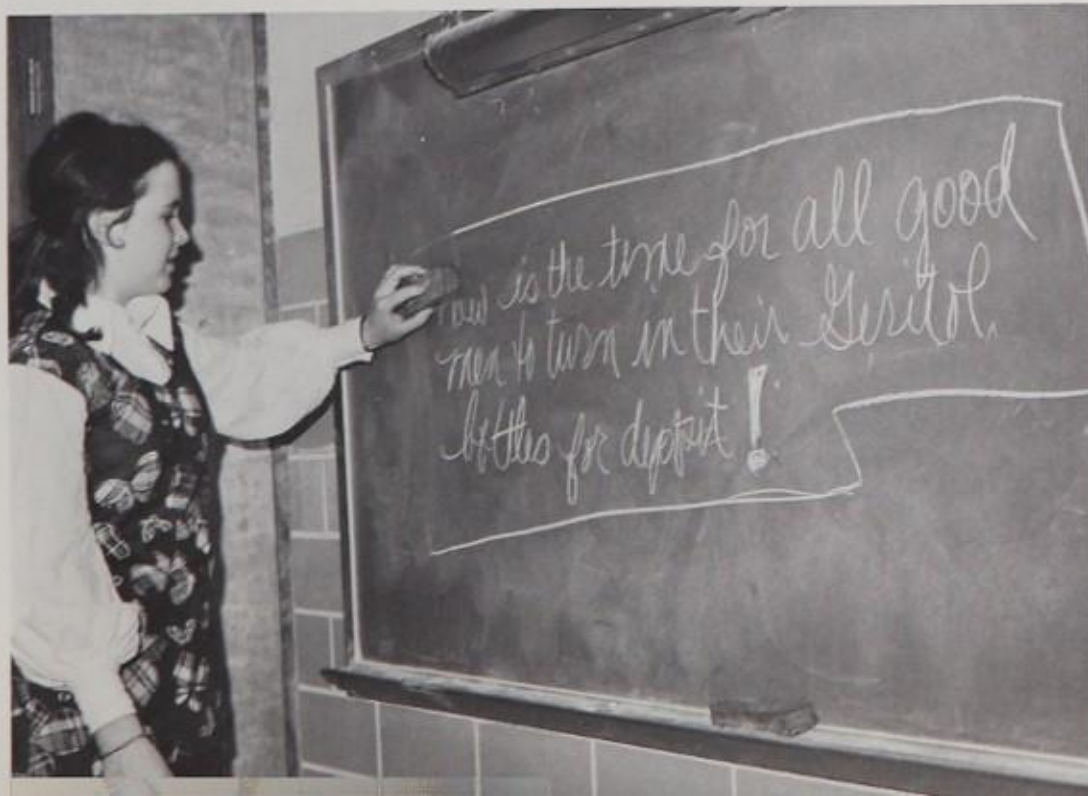 now is the time for all good
men to turn in their Geritol
bottles for deposit!